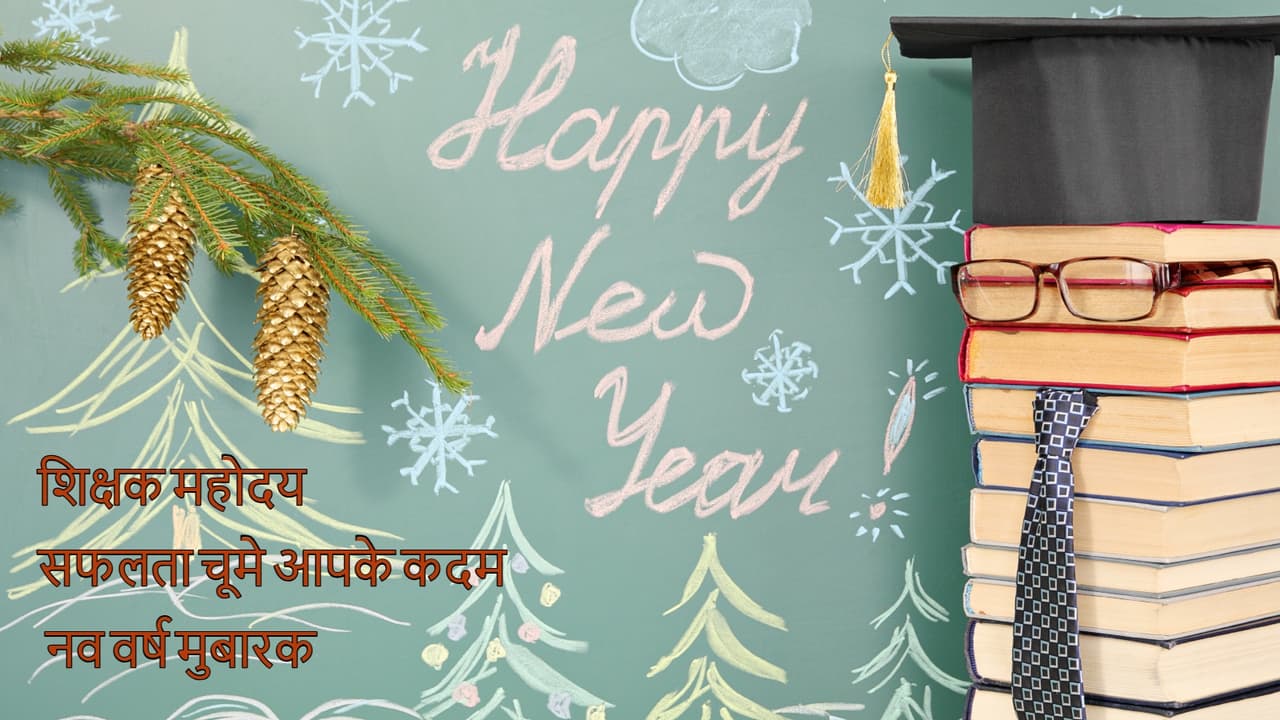 Happy
New
Year!
शिक्षक महोदय
सफलता चूमे आपके कदम
नव वर्ष मुबारक